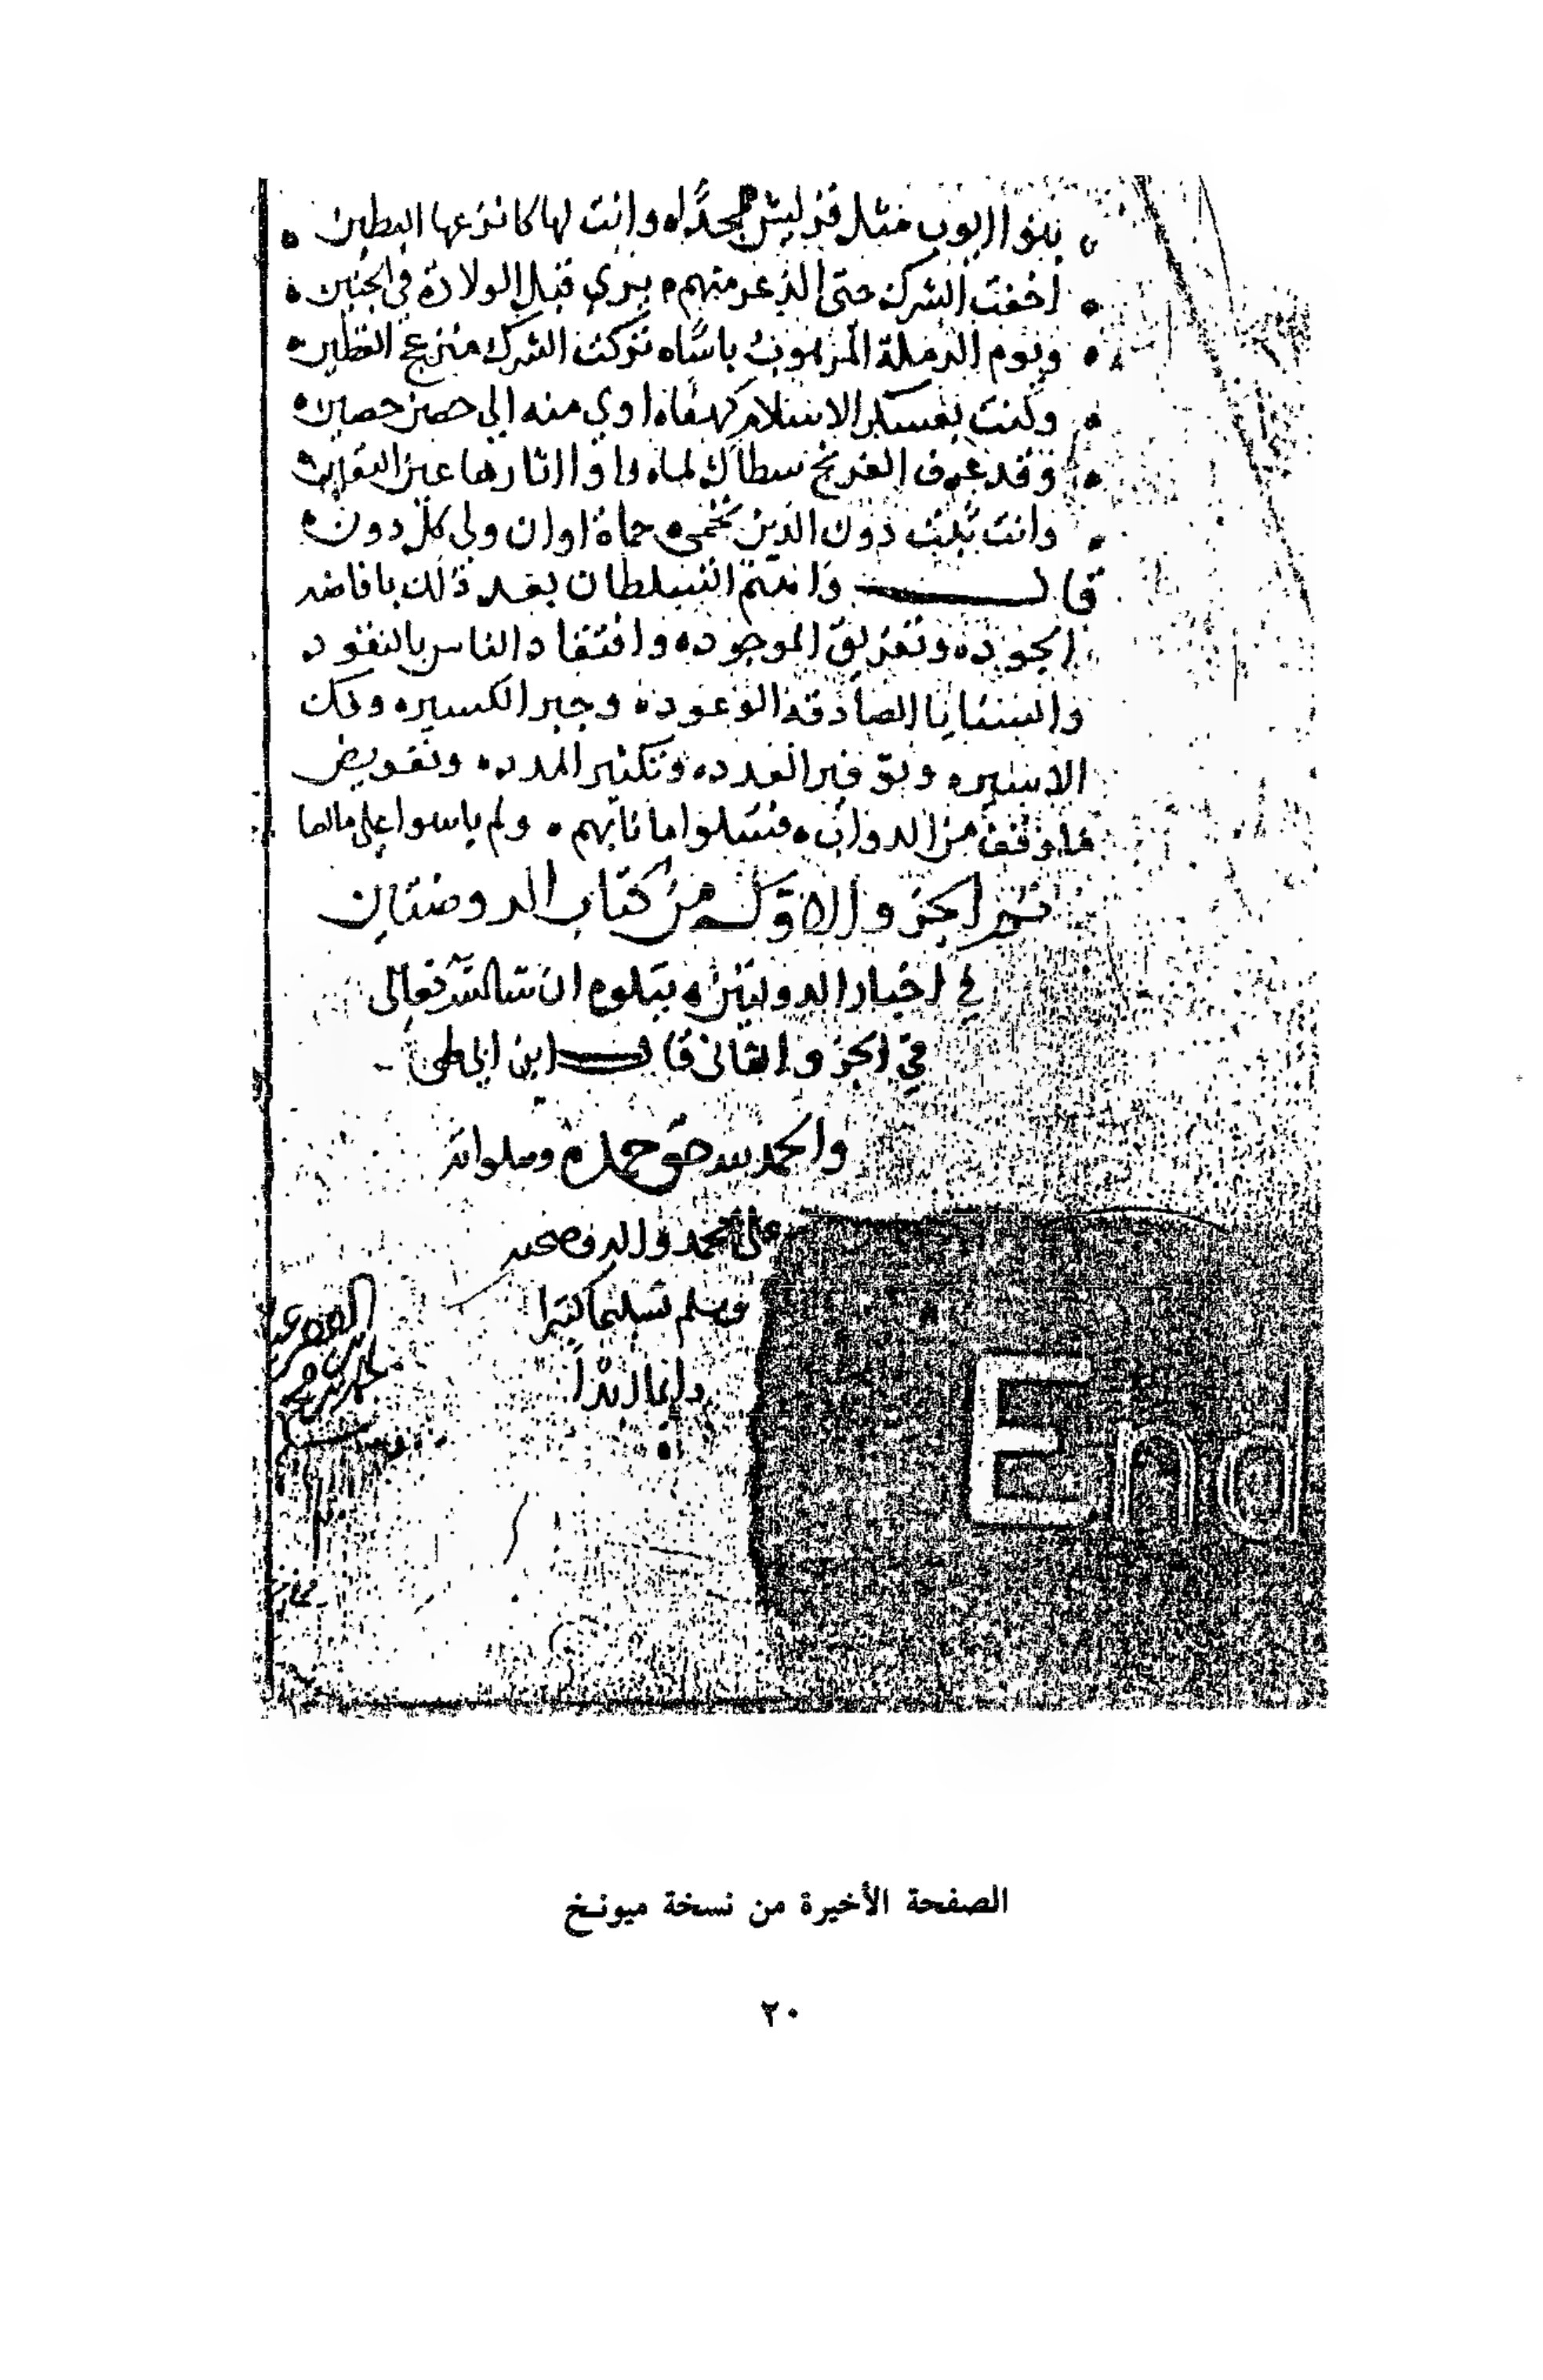 بنوا ايوب مثل قريش مجدا ه وانت لها كانزعها البطين
اخفت الشرك حتى الذعر منهم ه يرى قبل الولادة في الجنين ه
ويوم الرملة المرهوب باسا ه تركت الشرك منزعج القطين ه
وكنت لعسكر الاسلام كهفا ه اوى منه الى حصن حصين ه
وقد عرف الفرنج سطاك لما ه راوا اثارها عين اليقين
وانت ثبت دون الدين تحمى ه حماة اوان ولى كل دون ه
قال واهتم السلطان بعد ذلك بافاضه
الجوده وتفريق الموجوده وافتقاد الناس بالنقود
والنسايا الصادقة الوعوده وجبر الكسيره وفك
الاسيره وتوفير العدده وتكثير المدده وتعويض
ما وقف من الدواب ه فسلوا ما نابهم ه ولم ياسوا على ما
تم الجزو الاول من كتاب الروضتين
في اخبار الدولتين ه يتلوه ان شا الله تعالى
في الجزو الثاني قال ابن ابي طي
والحمد لله حق حمده وصلواته
على محمد واله وصحبه
وسلم تسليما كثيرا
دايما ابدا
End
الصفحة الأخيرة من نسخة ميونخ
٢٠